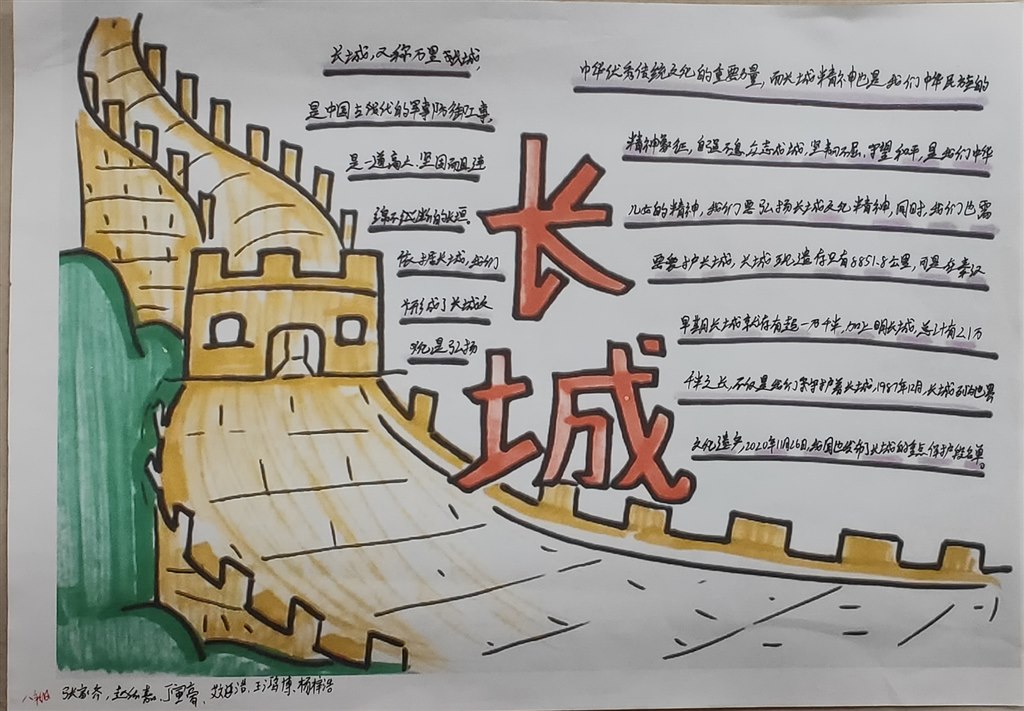 长城,又称万里长城,
是中国古代的军事防御工事,
是一道高大、坚固而且连
绵不断的长垣
依据长城,我们
形成了长城文
化是弘扬
长
城
中华优秀传统文化的重要力量,而长城精神也是我们中华民族的
精神象征,自强不息,众志成城,坚韧不屈,守望和平,是我们中华
儿女的精神,我们要弘扬长城文化精神,同时,我们也需
要要护长城,长城现遗存只有8851.8公里,可是在秦汉
早期长城就存有超一万千米,加上明长城,总计有2.1万
千米之长,不仅是我们守护着长城,1987年12月,长城列为世界
文化遗产,2020年11月26日,我国也发布了长城的重点保护段名单。